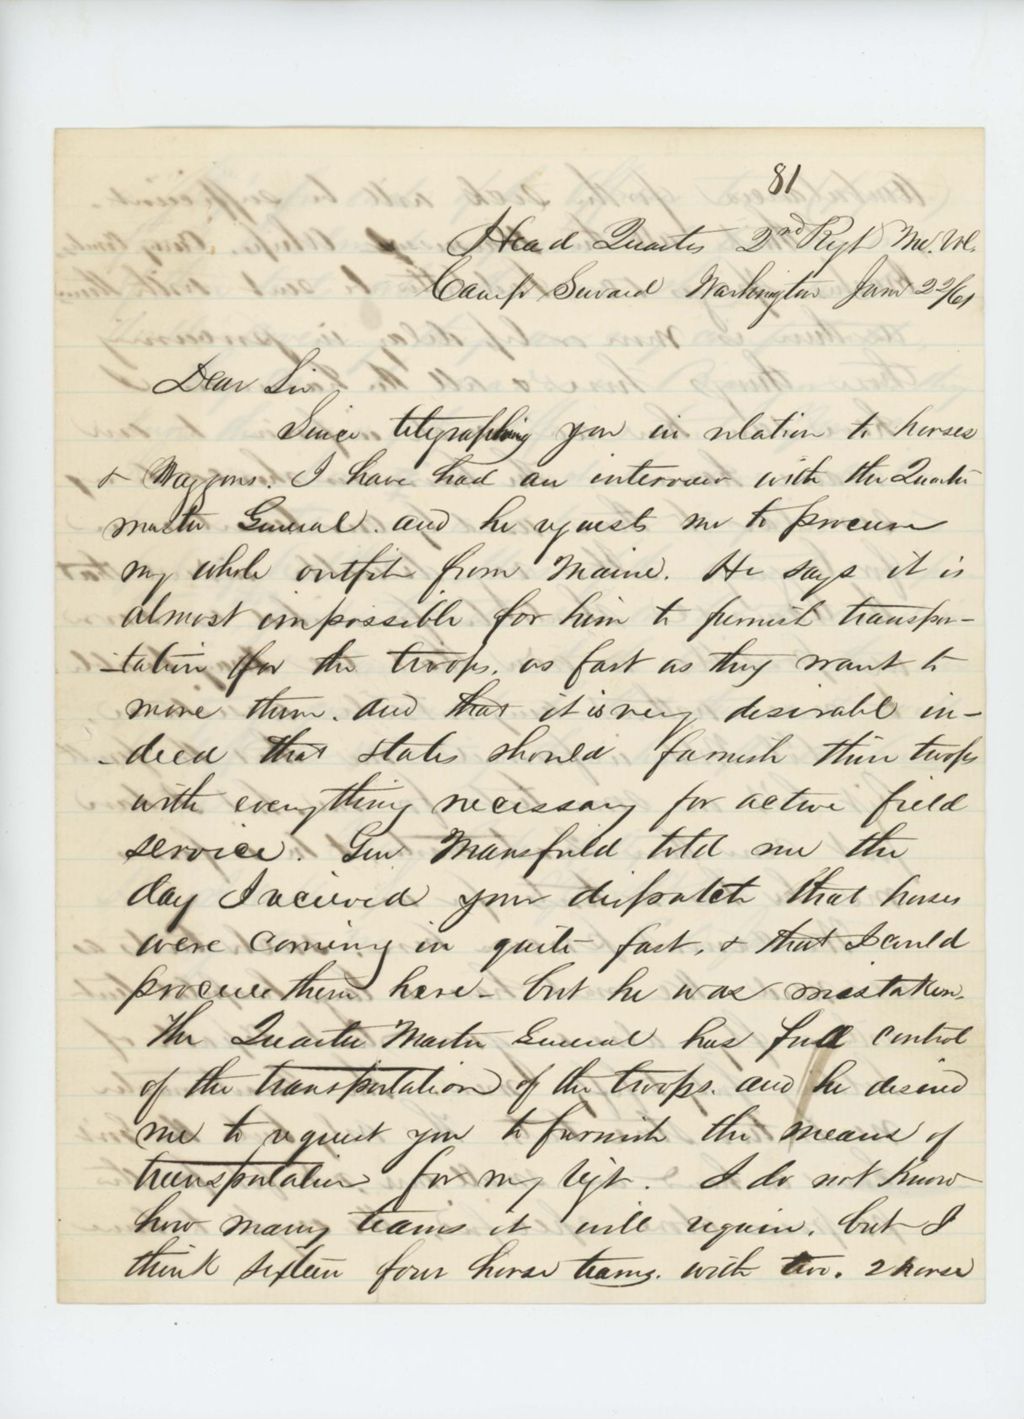 81
Head Quarters 2nd Regt Me. Vol.
Camp Seward Washington June 22/61
Dear Sir
Since telegraphing you in relation to horses
& Waggons. I have had an interview with the Quarter
master General. and he requests me to procure
my whole outfit from Maine. He says it is
almost impossible for him to furnish transpor-
-tation for the troops, as fast as they want to
move them. and that it is very desirable in-
-deed that states should furnish their troops
with everything necessary for active field
service. Gen Mansfield told me the
day I recieved your dispatch that horses
were coming in quite fast, & that I could
procure them here - but he was mistaken.
The Quarter Master General has full control
of the transportation of the troops. and he desired
me to request you to furnish the means of
transportation for my regt. I do not know
how many teams it will require, but I
think sixteen four horse teams. with two. 2 horse